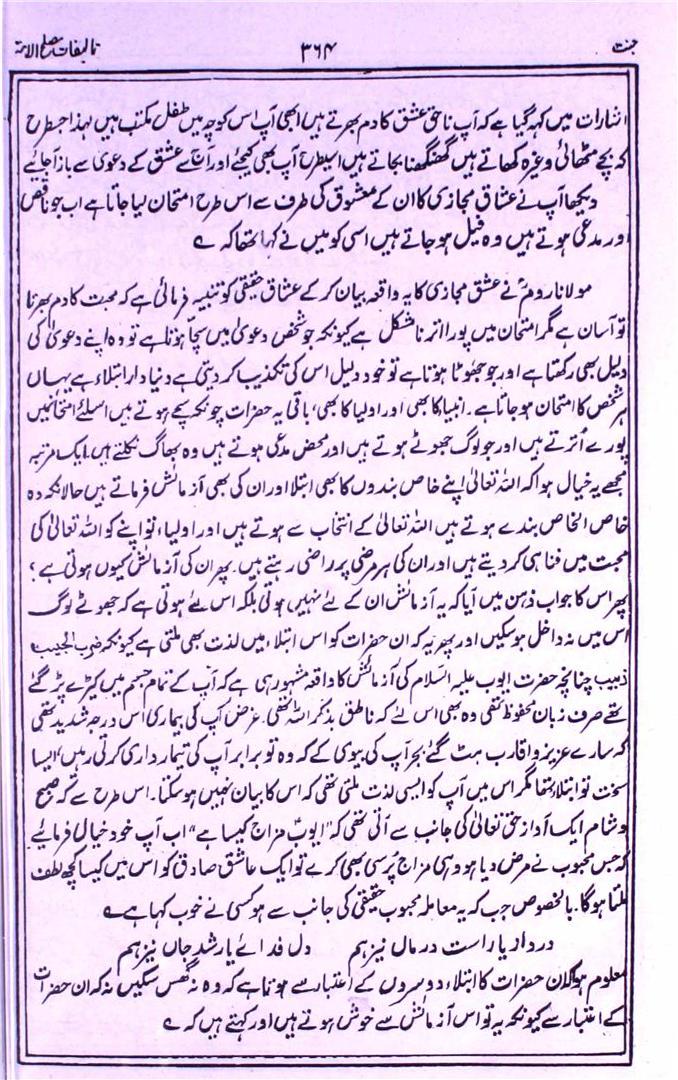 تالیفات مصلح الامۃ
۳۶۴
اشارات میں کہہ گیا ہے کہ آپ ناحق عشق کا دم بھرتے ہیں ابھی آپ اس کوچہ میں طفل مکتب ہیں لہذا جسطرح
کہ بچے مٹھائی وغیرہ کھاتے ہیں گھنگھنا بجاتے ہیں اسیطرح آپ بھی کیجئے اور آپ سے عشق کے دعوی سے باز آجائیے
دیکھا آپ نے عشاق مجازی کا ان کے معشوق کی طرف سے اس طرح امتحان لیا جاتا ہے اب جو ناقص
اور مدعی ہوتے ہیں وہ فیل ہو جاتے ہیں اسی کو میں نے کہا تھا کہ ؎
مولانا رومؒ نے عشق مجازی کا یہ واقعہ بیان کر کے عشاق حقیقی کو تنبیہ فرمائی ہے کہ محبت کا دم بھرنا
تو آسان ہے مگر امتحان میں پورا اترنا مشکل ہے کیونکہ جو شخص دعویٰ میں سچا ہوتا ہے تو وہ اپنے دعویٰ کی
دلیل بھی رکھتا ہے اور جو جھوٹا ہوتا ہے تو خود دلیل اس کی تکذیب کر دیتی ہے دنیا دار ابتلاء ہے یہاں
ہر شخص کا امتحان ہو جاتا ہے۔ انبیا کا بھی اور اولیا کا بھی، باقی یہ حضرات چونکہ سچے ہوتے ہیں اسلئے امتحان میں
پورے اُترتے ہیں اور جو لوگ جھوٹے ہوتے ہیں اور محض مدعی ہوتے ہیں وہ بھاگ نکلتے ہیں۔ ایک مرتبہ
مجھے یہ خیال ہوا کہ اللہ تعالیٰ اپنے خاص بندوں کا بھی ابتلا اور ان کی بھی آزمائش فرماتے ہیں حالانکہ وہ
خاص الخاص بندے ہوتے ہیں اللہ تعالیٰ کے انتخاب سے ہوتے ہیں اور اولیاء تو اپنے کو اللہ تعالیٰ کی
محبت میں فنا ہی کر دیتے ہیں اور ان کی ہر مرضی پر راضی رہتے ہیں۔ پھر ان کی آزمائش کیوں ہوتی ہے ؟
پھر اس کا جواب ذہن میں آیا کہ یہ آزمائش ان کے لئے نہیں ہوتی بلکہ اس لئے ہوتی ہے کہ جھوٹے لوگ
اس میں نہ داخل ہو سکیں اور پھر یہ کہ ان حضرات کو اس ابتلاء میں لذت بھی ملتی ہے کیونکہ ضرب الحبیب
زبیب چنانچہ حضرت ایوب علیہ السلام کی آزمائش کا واقعہ مشہور ہی ہے کہ آپ کے تمام جسم میں کیڑے پڑ گئے
تھے صرف زبان محفوظ تھی وہ بھی اس لئے کہ ناطق بذکر اللہ تھی۔ غرض آپ کی بیماری اس درجہ شدید تھی
کہ سارے عزیز و اقارب ہٹ گئے بجز آپ کی بیوی کے کہ وہ تو برابر آپ کی تیمارداری کرتی رہیں، ایسا
سخت تو ابتلاء تھا مگر اس میں آپ کو ایسی لذت ملتی تھی کہ اس کا بیان نہیں ہو سکتا۔ اس طرح سے کہ صبح
و شام ایک آواز حق تعالیٰ کی جانب سے آتی تھی کہ "ایوب مزاج کیسا ہے" اب آپ خود خیال فرمائیے
کہ جس محبوب نے مرض دیا ہو وہی مزاج پرسی بھی کرے تو ایک عاشق صادق کو اس میں کیسا کچھ لطف
ملتا ہوگا۔ بالخصوص جب کہ یہ معاملہ محبوب حقیقی کی جانب سے ہو کسی نے خوب کہا ہے ؎
درد از یار است درماں نیز ہم    دل فدائے یار شد جاں نیز ہم
معلوم ہوا کہ ان حضرات کا ابتلاء دوسروں کے اعتبار سے ہوتا ہے کہ وہ نہ گھس سکیں نہ کہ ان حضرات
کے اعتبار سے کیونکہ یہ تو اس آزمائش سے خوش ہوتے ہیں اور کہتے ہیں کہ ؎